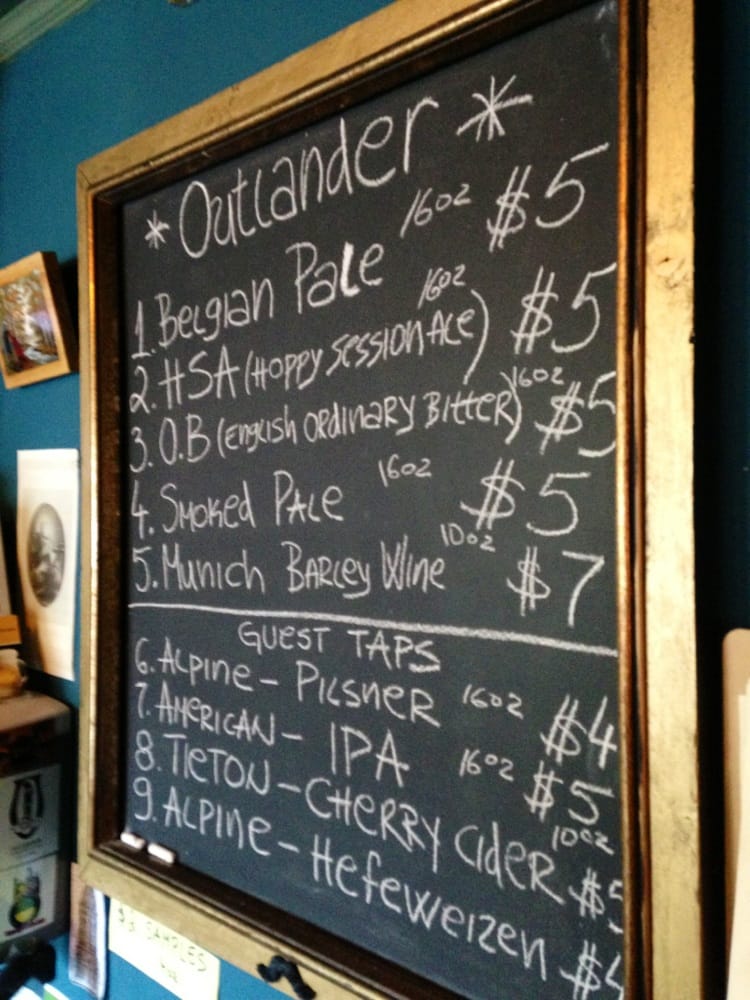 * Outlander *
1. Belgian Pale 16oz $5
2. HSA (Hoppy Session Ale) 16oz $5
3. O.B (English Ordinary Bitter) 16oz $5
4. Smoked Pale 16oz $5
5. Munich Barley Wine 10oz $7
Guest Taps
6. Alpine - Pilsner 16oz $4
7. American - IPA 16oz $5
8. Tieton - Cherry Cider 10oz $5
9. Alpine - Hefeweizen $4
SAMPLES
4oz